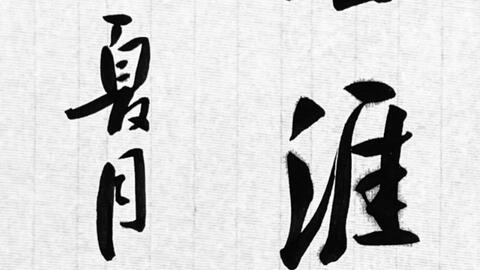 涯
夏月